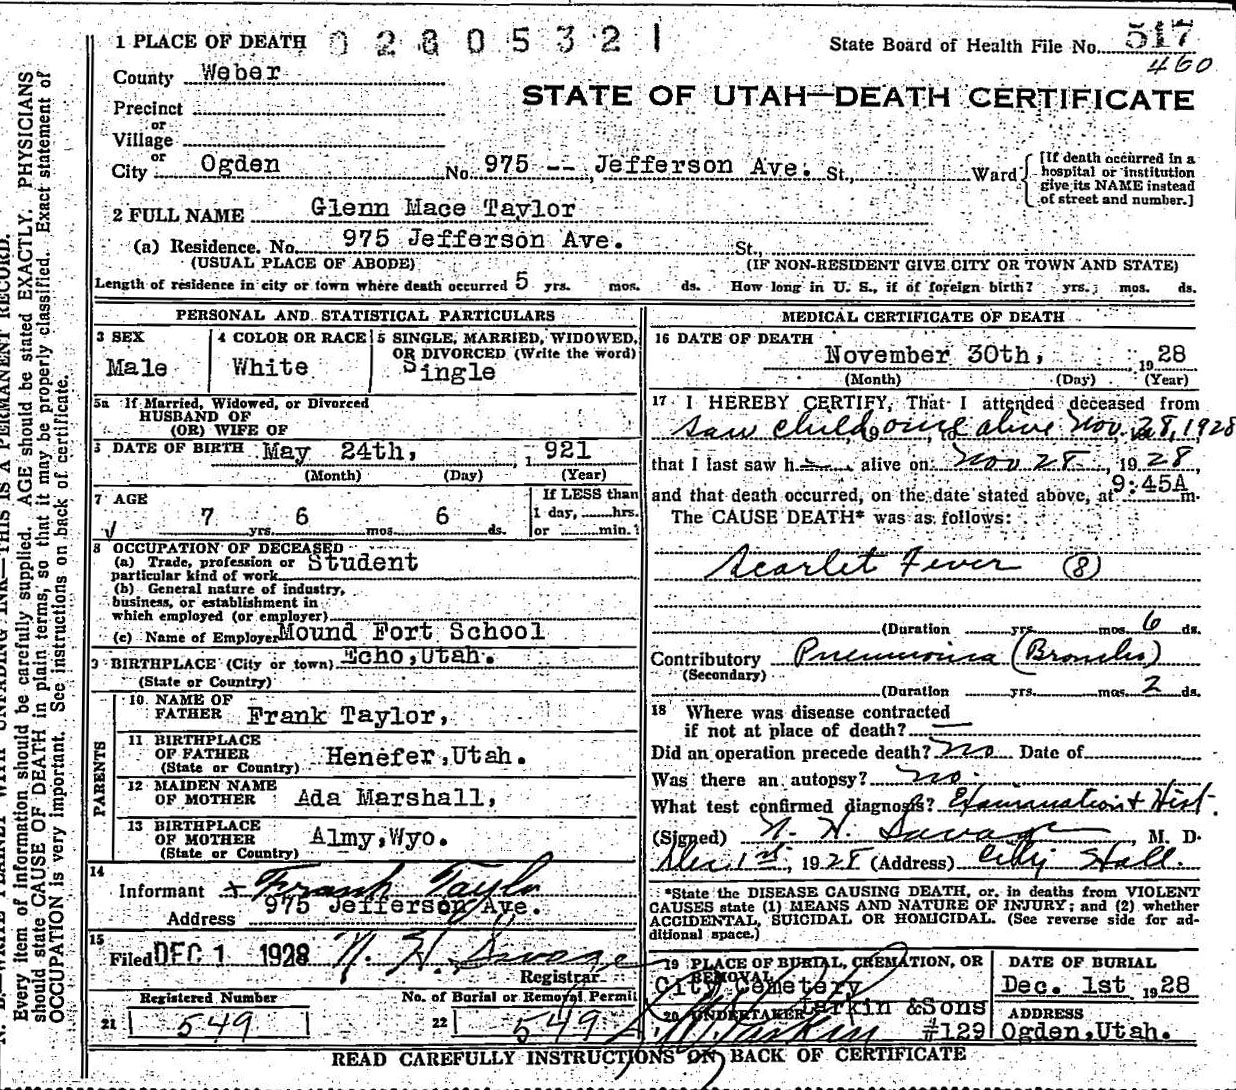 1 PLACE OF DEATH 0260532 1
State Board of Health File No. 517
460
County Weber
STATE OF UTAH—DEATH CERTIFICATE
Precinct
or
Village
or
City Ogden No. 975 -- Jefferson Ave. St., Ward
[If death occurred in a hospital or institution give its NAME instead of street and number.]
2 FULL NAME Glenn Mace Taylor
(a) Residence. No. 975 Jefferson Ave. St.,
(USUAL PLACE OF ABODE) (IF NON-RESIDENT GIVE CITY OR TOWN AND STATE)
Length of residence in city or town where death occurred 5 yrs. mos. ds. How long in U. S., if of foreign birth? yrs. mos. ds.
PERSONAL AND STATISTICAL PARTICULARS
3 SEX
Male
4 COLOR OR RACE
White
5 SINGLE, MARRIED, WIDOWED,
OR DIVORCED (Write the word)
Single
5a If Married, Widowed, or Divorced
HUSBAND OF
(OR) WIFE OF
6 DATE OF BIRTH May 24th, 1921
(Month) (Day) (Year)
7 AGE
7 yrs. 6 mos. 6 ds.
If LESS than
1 day, hrs.
or min.?
8 OCCUPATION OF DECEASED
(a) Trade, profession or Student
particular kind of work
(b) General nature of industry,
business, or establishment in
which employed (or employer)
(c) Name of Employer Mound Fort School
9 BIRTHPLACE (City or town) Echo, Utah.
(State or Country)
PARENTS
10 NAME OF
FATHER Frank Taylor,
11 BIRTHPLACE
OF FATHER Henefer, Utah.
(State or Country)
12 MAIDEN NAME
OF MOTHER Ada Marshall,
13 BIRTHPLACE
OF MOTHER Almy, Wyo.
(State or Country)
14
Informant x Frank Taylor
Address 975 Jefferson Ave.
15
Filed DEC 1 1928 N. H. Savage
Registrar
Registered Number
21 549
No. of Burial or Removal Permit
22 549
MEDICAL CERTIFICATE OF DEATH
16 DATE OF DEATH
November 30th, 1928
(Month) (Day) (Year)
17 I HEREBY CERTIFY, That I attended deceased from
Saw child once alive Nov. 28, 1928
that I last saw h alive on Nov 28, 1928,
and that death occurred, on the date stated above, at 9:45A m.
The CAUSE DEATH* was as follows:
Scarlet Fever (8)
(Duration yrs. mos. 6 ds.
Contributory Pneumonia (Broncho)
(Secondary)
(Duration yrs. mos. 2 ds.
18 Where was disease contracted
if not at place of death?
Did an operation precede death? No Date of
Was there an autopsy? No.
What test confirmed diagnosis? Examination & Hist.
(Signed) N. H. Savage M. D.
Dec 1st, 1928 (Address) City Hall.
*State the DISEASE CAUSING DEATH, or, in deaths from VIOLENT
CAUSES state (1) MEANS AND NATURE OF INJURY; and (2) whether
ACCIDENTAL, SUICIDAL OR HOMICIDAL. (See reverse side for ad-
ditional space.)
19 PLACE OF BURIAL, CREMATION, OR
REMOVAL
City Cemetery
DATE OF BURIAL
Dec. 1st, 1928
20 UNDERTAKER Larkin & Sons
#129
ADDRESS
Ogden, Utah.
READ CAREFULLY INSTRUCTIONS ON BACK OF CERTIFICATE
N. B.—WRITE PLAINLY WITH UNFADING INK—THIS IS A PERMANENT RECORD.
Every item of information should be carefully supplied. AGE should be stated EXACTLY. PHYSICIANS
should state CAUSE OF DEATH in plain terms, so that it may be properly classified. Exact statement of
OCCUPATION is very important. See instructions on back of certificate.